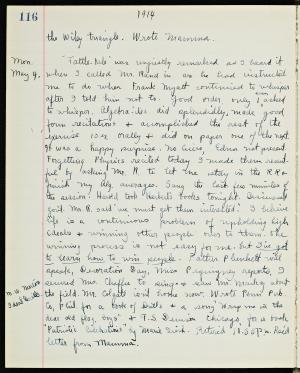 116
1914
the Wiley triangle. Wrote Mamma.
Mon.
May 4.
"Tattle-tale" was unjustly remarked as I heard it
when I called Mr. Hand in as he had instructed
me to do when Frank Myatt continued to whisper
after I told him not to. Good order only 1 asked
to whisper. Algebra-ites did splendidly, made good
form recitations & accomplished the rest of the
exercise 152 orally & did on paper one of the next
It was a happy surprise. No Lucia, Edna not present.
Forgetting Physics recited today I made them
by asking Mr. H. to let me stay in the R.R. &
finish my Alg. averages. Sang the last few minutes of
the session. Hand took Rachel's books tonight. Seriously
said Mr. R. said "we must get them interested." I believe
life is a continuous problem of upholding high
ideals & winning other people only to them. The
winning process is not easy for me, but I've got
to learn how to win people. Pattern Plunkett will
speak, Decoration Day, Miss reports, I
secured Mrs. Chaffee to sing & also Mr. Mackey about
the field. Mr. Colgate isn't home now. Wrote Penn Pub.
Co., Phil for a book of Drills & a song "Wrap me in the
dear old flag, boys" & T.S. Denison Chicago for a book
"Patriotic Celebrations" by Marie Irish. Retired 10.50 P.M. Read
letter from Mamma.